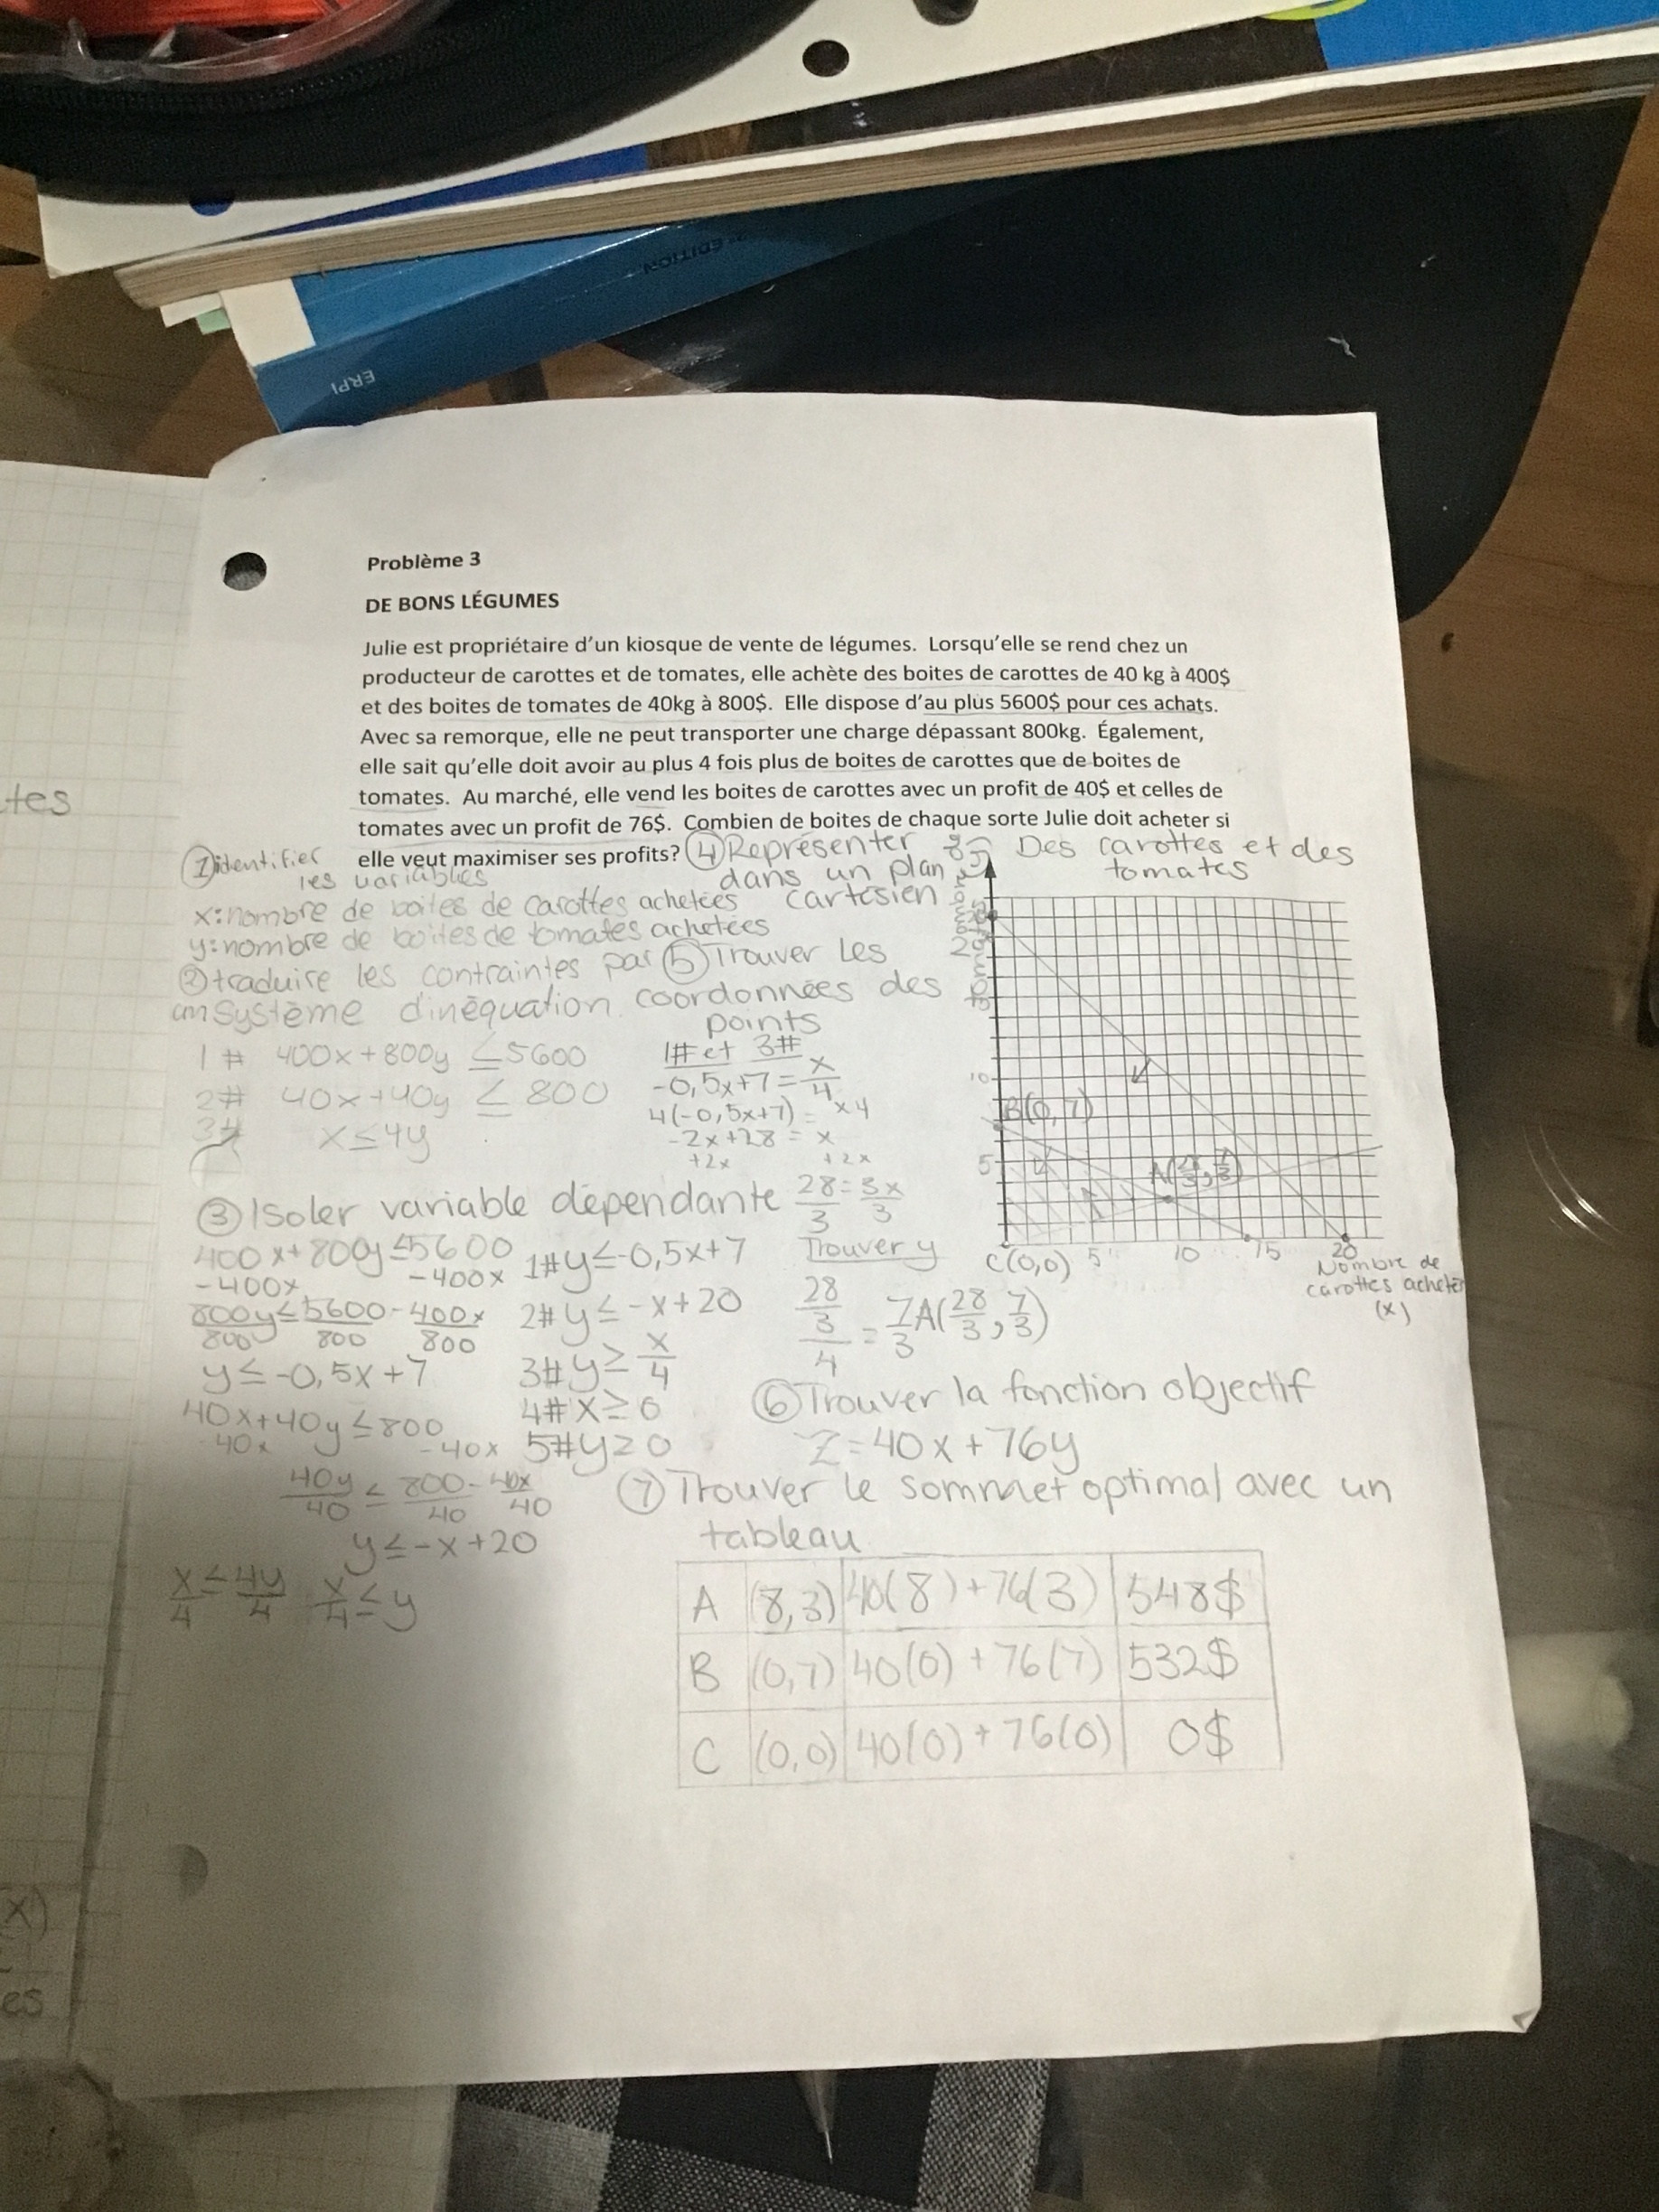 2e EDITION
ERPI
tes
Problème 3
DE BONS LÉGUMES
Julie est propriétaire d'un kiosque de vente de légumes. Lorsqu'elle se rend chez un
producteur de carottes et de tomates, elle achète des boites de carottes de 40 kg à 400$
et des boites de tomates de 40kg à 800$. Elle dispose d'au plus 5600$ pour ces achats.
Avec sa remorque, elle ne peut transporter une charge dépassant 800kg. Également,
elle sait qu'elle doit avoir au plus 4 fois plus de boites de carottes que de boites de
tomates. Au marché, elle vend les boites de carottes avec un profit de 40$ et celles de
tomates avec un profit de 76$. Combien de boites de chaque sorte Julie doit acheter si
elle veut maximiser ses profits?
① identifier
les variables
x: nombre de boites de carottes achetées
y: nombre de boites de tomates achetées
② traduire les contraintes par
un système d'inéquation
1# 400x+800y ≤ 5600
2# 40x+40y ≤ 800
3# x≤4y
③ Isoler variable dépendante
400x+800y≤5600
-400x -400x
800y/800 ≤ 5600/800 - 400x/800
y≤-0,5x+7
40x+40y≤800
-40x -40x
40y/40 ≤ 800/40 - 40x/40
y≤-x+20
x/4 ≤ 4y/4 x/4 ≤ y
1# y≤-0,5x+7
2# y≤-x+20
3# y≥ x/4
4# x≥0
5# y≥0
④ Représenter
dans un plan
cartésien
Des carottes et des
tomates
tomates
20
10
5
B(0,7)
A(28/3, 7/3)
C(0,0) 5 10 15 20
Nombre de
carottes acheter
(x)
⑤ Trouver les
coordonnées des
points
1# et 3#
-0,5x+7 = x/4
4(-0,5x+7) = x4
-2x+28 = x
+2x +2x
28/3 = 3x/3
Trouver y
28/3/4 = 7/3 A(28/3, 7/3)
⑥ Trouver la fonction objectif
Z=40x+76y
⑦ Trouver le sommet optimal avec un
tableau
A (8,3) 40(8)+76(3) 548$
B (0,7) 40(0)+76(7) 532$
C (0,0) 40(0)+76(0) 0$
(x)
es